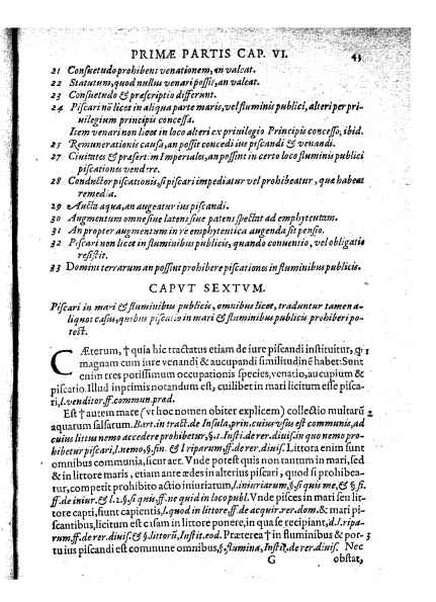 PRIMÆ PARTIS CAP. VI. 43
21 Consuetudo prohibens venationem, an valeat.
22 Statutum, quod nullus venari possit, an valeat.
23 Consuetudo & præscriptio differunt.
24 Piscari nō licet in aliqua parte maris, vel fluminis publici, alteri per pri-
uilegium principis concessa.
Item venari non licet in loco alteri ex priuilegio Principis concesso, ibid.
25 Remunerationis causa, an possit concedi ius piscandi & venandi.
27 Ciuitates & præsertim Imperiales, an possint in certo loco fluminis publici
piscationes vendere.
28 Conductor piscationis, si piscari impediatur vel prohibeatur, quæ habeat
remedia.
29 Aucta aqua, an augeatur ius piscandi.
30 Augmentum omne siue latens siue patens spectat ad emphyteutam.
31 An propter augmentum in re emphyteutica augenda sit pensio.
32 Piscari non licet in fluminibus publicis, quando conuentio, vel obligatio
resistit.
33 Domini terrarum an possint prohibere piscationes in fluminibus publicis.
CAPVT SEXTVM.
Piscari in mari & fluminibus publicis, omnibus licet, traduntur tamen a-
liquot casus, quibus piscatio in mari & fluminibus publicis prohiberi po-
test.
CÆterum, † quia hic tractatus etiam de iure piscandi instituitur, q̃ 1
magnam cum iure venandi & aucupandi similitudinē habet: Sunt
enim tres potissimum occupationis species, venatio, aucupium &
piscatio. Illud inprimis notandum est, cuilibet in mari licitum esse pisca-
ri, l. venditor. ff. commun. præd.
Est † autem mare (vt hoc nomen obiter explicem) collectio multarū 2
aquarum salsarum. Bart. in tract. de Insula, prin. cuius vsus est communis, ad
cuius littus nemo accedere prohibetur, §. 1. Insti. de rer. diuis. an quo nemo pro-
hibetur piscari, l. nemo, §. fin. & l. riparum, ff. de rer. diuis. Littora enim sunt
omnibus communia, sicut aer. Vnde potest quis non tantum in mari, sed
& in littore maris, etiam ante ædes in alterius piscari, quod si prohibea-
tur, competit prohibito actio iniuriarum, l. iniuriarum, §. si quis me, & §. si.
ff. de iniur. & l. 2. §. si quis, ff. ne quid in loco publ. Vnde pisces in mari seu lit-
tore capti, fiunt capientis, l. quod in littore, ff. de acquir. rer. dom. & mari pi-
scantibus, licitum est casam in littore ponere, in qua se recipiant, d. l. ripa-
rum, ff. de rer. diuis. & §. littorū, Instit. eod. Præterea † in fluminibus & por- 3
tu ius piscandi est commune omnibus, §. flumina, Instit. de rer. diuis. Nec
G obstat,